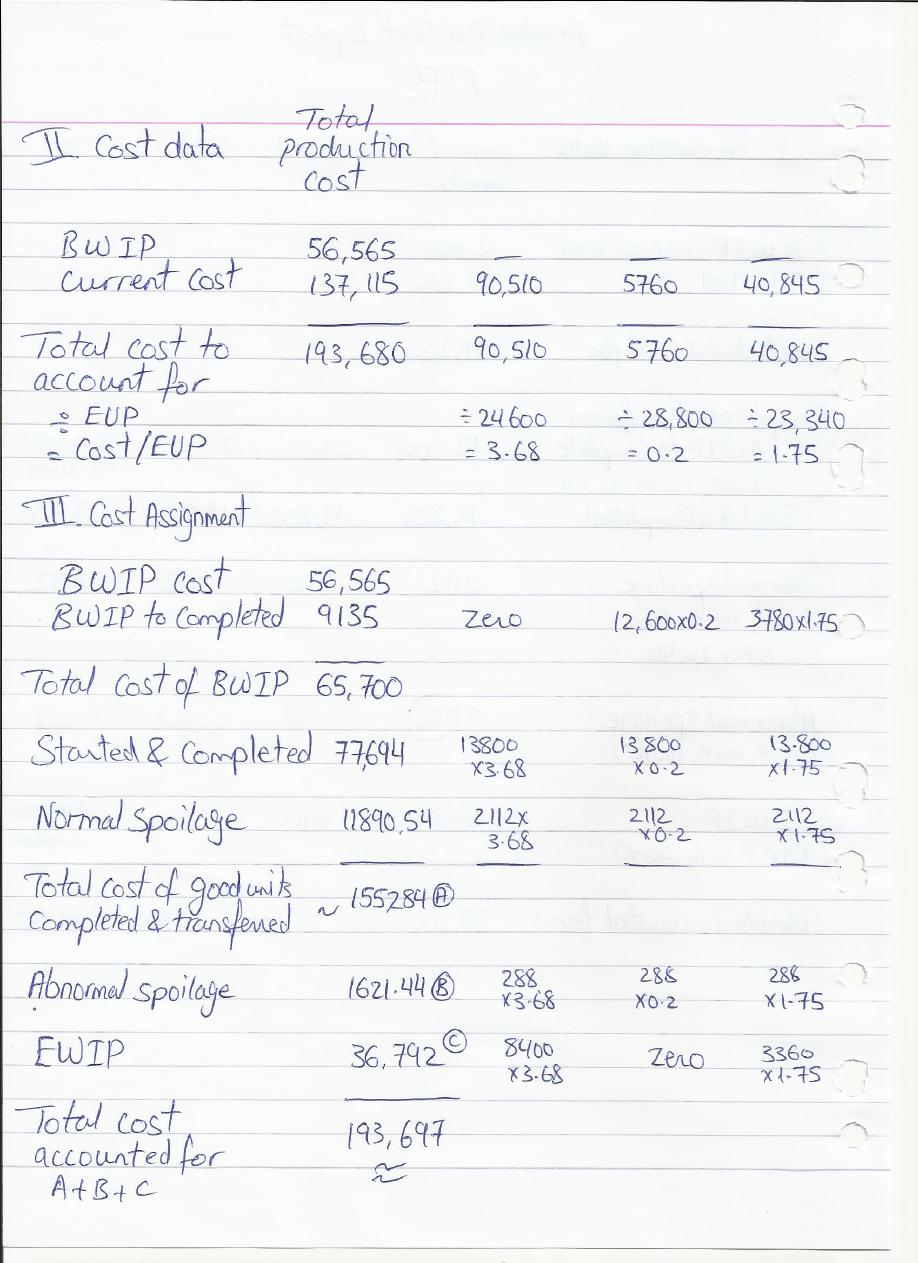 Total
II. Cost data production
cost
BWIP 56,565 — — —
Current cost 137,115 90,510 5760 40,845
Total cost to 193,680 90,510 5760 40,845
account for
÷ EUP ÷24600 ÷28,800 ÷23,340
= Cost/EUP = 3.68 = 0.2 = 1.75
III. Cost Assignment
BWIP cost 56,565
BWIP to Completed 9135 Zero 12,600x0.2 3780x1.75
Total cost of BWIP 65,700
Started & Completed 77,694 13800 13800 13.800
x3.68 x0.2 x1.75
Normal Spoilage 11890,54 2112x 2112 2112
3.68 x0.2 x1.75
Total cost of good units
Completed & transferred ~ 155284 (A)
Abnormal spoilage 1621.44 (B) 288 288 288
x3.68 x0.2 x1.75
EWIP 36,792 (C) 8400 Zero 3360
x3.68 x1.75
Total cost 193,697
accounted for ≈
A+B+C